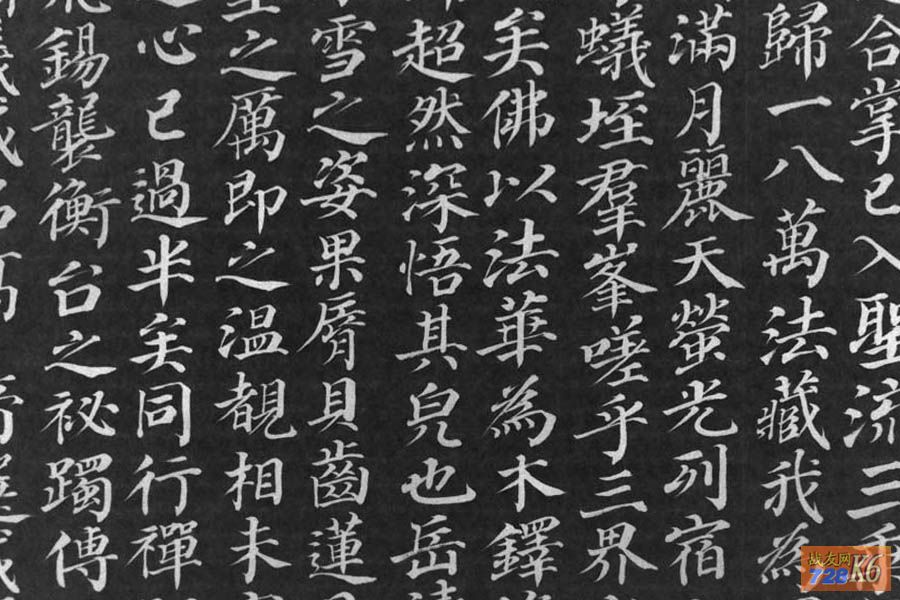 合掌已入聖流三乘
歸一八萬法藏我為
滿月麗天螢光列宿
蟻垤羣峯嗟乎三界
矣佛以法華為木鐸
超然深悟其皃也岳
雪之姿果脣貝齒蓮
之厲即之溫覩相未
心已過半矣同行禪
錫襲衡台之祕躅傳
战友网
728
K6